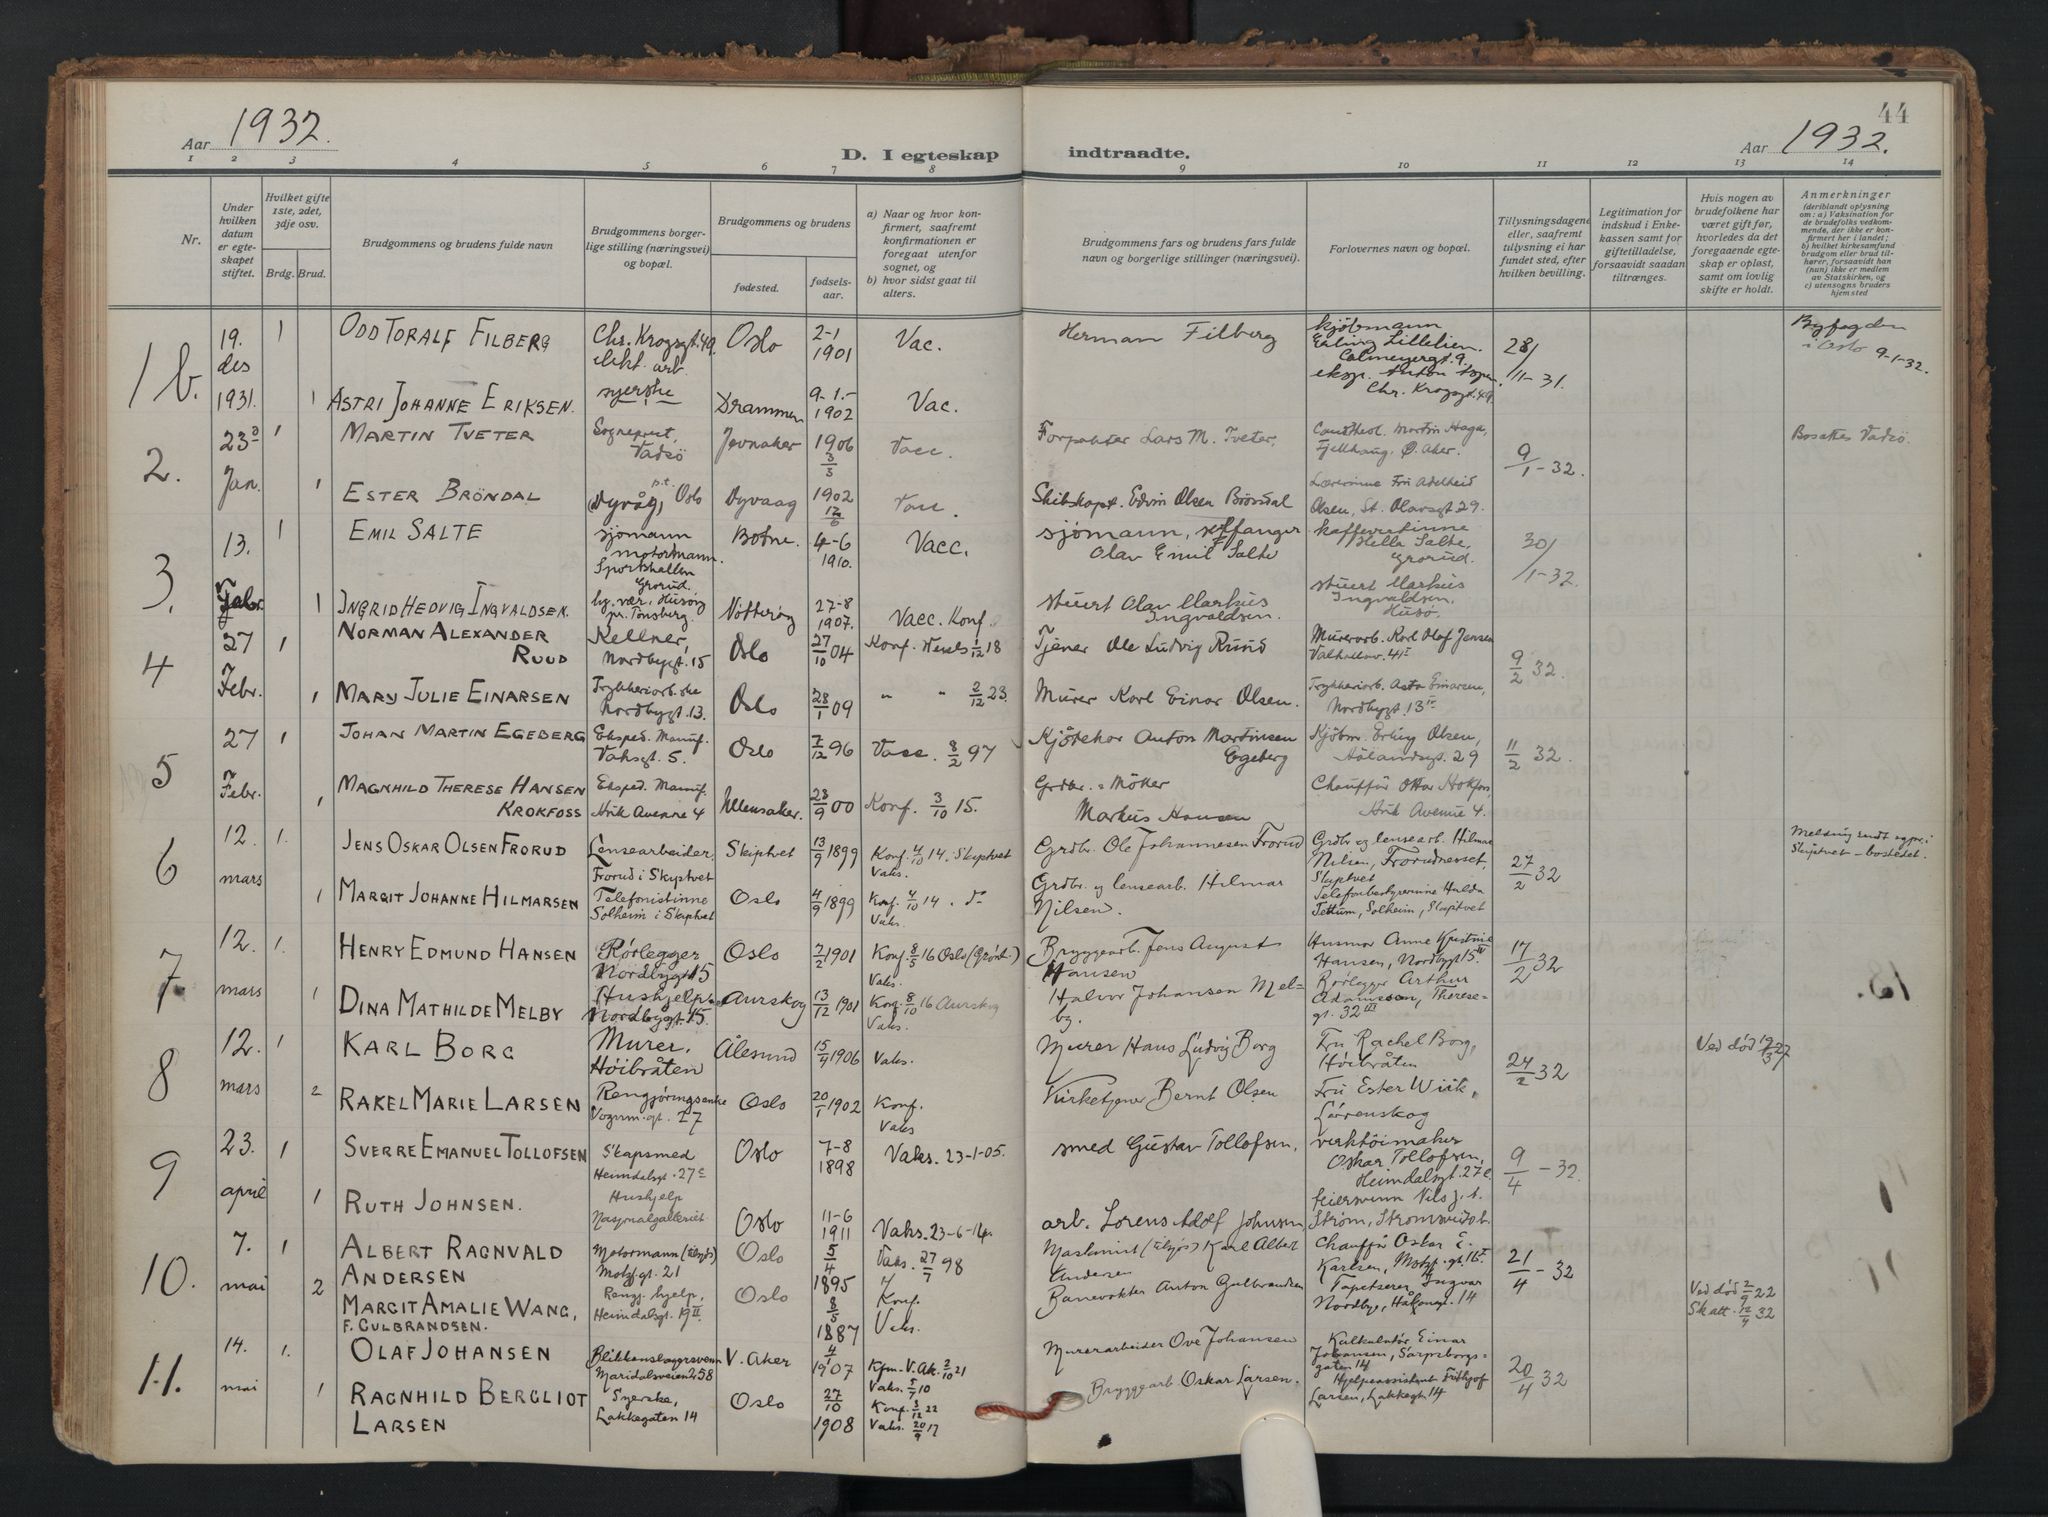 Aar 1932.
D. I egteskap indtraadte.
44
Aar 1932.
1 2 3 4 5 6 7 8 9 10 11 12 13 14
Nr.
Under hvilken datum er egteskapet stiftet.
Hvilket gifte 1ste, 2det, 3dje osv.
Brdg. Brud.
Brudgommens og brudens fulde navn
Brudgommens borgerlige stilling (næringsvei) og bopæl.
Brudgommens og brudens
fødested.
fødselsaar.
a) Naar og hvor konfirmert, saafremt konfirmationen er foregaat utenfor sognet, og
b) hvor sidst gaat til alters.
Brudgommens fars og brudens fars fulde navn og borgerlige stillinger (næringsvei).
Forlovernes navn og bopæl.
Tillysningsdagene eller, saafremt tillysning ei har fundet sted, efter hvilken bevilling.
Legitimation for indskud i Enkekassen samt for giftetilladelse, forsaavidt saadan tiltrænges.
Hvis nogen av brudefolkene har været gift før, hvorledes da det foregaaende egteskap er opløst, samt om lovlig skifte er holdt.
Anmerkninger
(deriblandt oplysning om: a) Vaksination for de brudefolks vedkommende, der ikke er konfirmert her i landet; b) hvilket kirkesamfund brudgom eller brud tilhører, forsaavidt han (hun) ikke er medlem av Statskirken, og c) utensogns bruders hjemsted
1 b. 19. des 1931.
1 ODD TORALF FILBERG Chr. Krogsgt. 49. elekt. arb. Oslo 2-1 1901 Vac. Herman Filberg kjöbmann Erling Lillelien. Calmeyergt. 9. 28/11-31. Byfogden i Oslo 9-1-32.
1 ASTRI JOHANNE ERIKSEN. syerske Drammen 9-1- 1902 Vac. eksp. Anton Chr. Krogsgt. 49.
2. 23 Jan.
1 MARTIN TVETER Sogneprest, Vadsö Jevnaker 1906 3/3 Vacc. Forpakter Lars M. Tveter. Cand. theol. Martin Haga, Fjellhaug, Ö. Aker. 9/1-32. Bosattes Vadsö.
1 ESTER BRÖNDAL Dyvåg, p.t. Oslo Dyvaag 1902 12/6 Vacc. Skibskapt. Edvin Olsen Bröndal Lærerinne Frk Adelheid Olsen, St. Olavsgt 29.
3. 13. Febr.
1 EMIL SALTE sjömann motormann. Sportshallen Grorud. Botne. 4-6 1910. Vacc. sjömann, selfanger Olav Emil Salte kaffevertinne Hella Salte, Grorud. 30/1-32.
1 INGRID HEDVIG INGVALDSEN. hj. vær. Husöy pr. Tönsberg. Nötteröy 27-8 1907. Vacc. Konf. stuert Olav Markus Ingvaldsen. stuert Markus Ingvaldsen, Husö.
4 27 Febr.
1 NORMAN ALEXANDER RUUD Kellner, Nordbygt. 15 Oslo 27/10 04 Konf. 1/12 18 Tjener Ole Ludvig Ruud Murerarb. Karl Olaf Jensen Valhallav. 41 9/2 32.
1 MARY JULIE EINARSEN Trykkeriarb.ske Nordbygt. 13. Oslo 28/1 09 " " 2/12 23. Murer Karl Einar Olsen. Trykkeriarb. Asta Einarsen, Nordbygt. 13
5 27 Febr.
1 JOHAN MARTIN EGEBERG Eksped. Manuf. Vahlsgt. 5. Oslo 7/12 96 Vacc. 8/2 97 Kjötekor Anton Martinsen Egeberg Kjöbm. Erling Olsen, Hölandsgt. 29 11/2 32.
1 MAGNHILD THERESE HANSEN KROKFOSS Eksped. Manuf. Avenue 4 Ullensaker. 28/9 00 Konf. 3/10 15. Grdbr. Möller Markus Hansen Chauffür Ottar Avenue 4.
6 12. mars
1. JENS OSKAR OLSEN FRORUD Lensearbeider, Frorud i Skiptvet Skiptvet 13/9 1899 Konf. 4/10 14. Skiptvet Vaks. Grdbr. Ole Johannesen Frorud Grdbr. og lensearb. Hilmar Nilsen, Frorudnesset, Skiptvet 27/2 32 Melding sendt sgpr. i Skiptvet – bostedet.
1 MARGIT JOHANNE HILMARSEN Telefonistinne Solheim i Skiptvet Oslo 4/9 1899 Konf. 4/10 14. do Vaks. Grdbr. og lensearb. Hilmar Nilsen. Telefonbestyrerinne Hulda Tettum, Solheim, Skiptvet
7 12. mars
1. HENRY EDMUND HANSEN Rörlegger Nordbygt 15 Oslo 7/2 1901 Konf. 8/5 16 Oslo (Grönl.) Vaks. Bryggearb. Jens August Hansen Husmor Anne Kristine Hansen, Nordbygt 15 17/2 32
1 DINA MATHILDE MELBY Hushjelp Nordbygt 15. Aurskog 13/12 1901 Konf. 8/10 16 Aurskog Vaks. Halvor Johansen Melby. Rörlegger Arthur Adamsson, Theresegt. 32 III
8 12. mars
1 KARL BORG Murer, Höibråten Ålesund 15/4 1906 Vaks. Murer Hans Ludvig Borg Fru Rachel Borg, Höibråten 24/2 32 Ved död 12/3 27
2 RAKEL MARIE LARSEN Rengjöringsenke Vognm.gt. 27 Oslo 20/1 1902 Konf. Vaks Kirketjener Bernt Olsen Fru Ester Wiik, Lörenskog
9 23. april
1 SVERRE EMANUEL TOLLOFSEN Skapsmed Heimdalsgt. 27c Oslo 7-8 1898 Vaks. 23-1-05. smed Gustav Tollofsen. verktöimaker Oskar Tollofsen, Heimdalsgt. 27c. 9/4-32.
1 RUTH JOHNSEN. Hushjelp Nasjonalgalleriet Oslo 11-6 1911 Vaks. 23-6-14. arb. Lorens Adolf Johnsen feiersvenn Nils Ström,
10. 7. mai
1 ALBERT RAGNVALD ANDERSEN Motormann Motzf.gt. 21 Oslo 5/4 1895 Vaks. 27/7 98 Maskinist Karl Albert Andersen Chauffür Oskar E. Karlsen, Motzf. gt. 16 I 21/4-32
2 MARGIT AMALIE WANG, F. GULBRANDSEN. Rengj. hjelp, Heimdalsgt. 19 II Oslo 8/5 1887 Konf. Vaks. Banevokter Anton Gulbrandsen Tapetserer Ingvar Nordbye, 14 Ved död 2/9 22 Skatt. 12/4 32
11. 14. mai
1. OLAF JOHANSEN Blikkenslagersvenn Maridalsveien 258 V. Aker 4/1 1907 Kfm. V. Ak. 2/10 21 Vaks. 5/7 10 Murerarbeider Ove Johansen Kalkulatör Einar Johansen, Sarpsborggaten 14 20/4 32
1 RAGNHILD BERGLIOT LARSEN Syerske, Lakkegaten 14 Oslo 27/10 1908 Konf. 3/12 22 Vaks. 20/9 17 Bryggearb Oskar Larsen. Hjelpeassistent Frithjof Larsen, Lakkegt 14